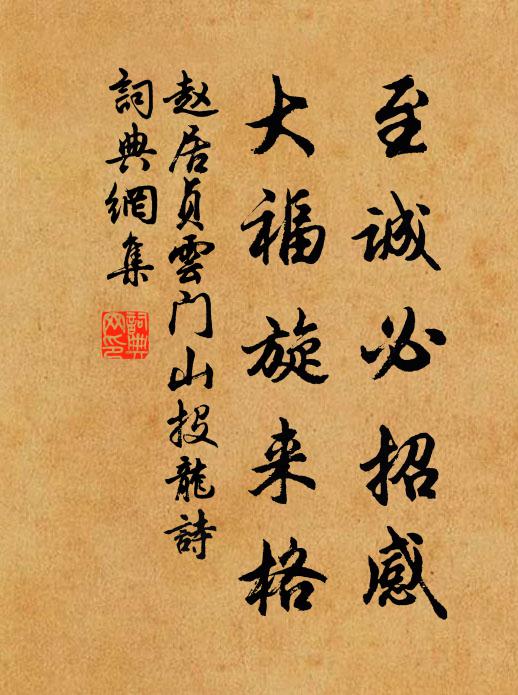 至诚必招感
大福旋来格
赵居贞雲门山投龍詩
詞典網集
詞典网印